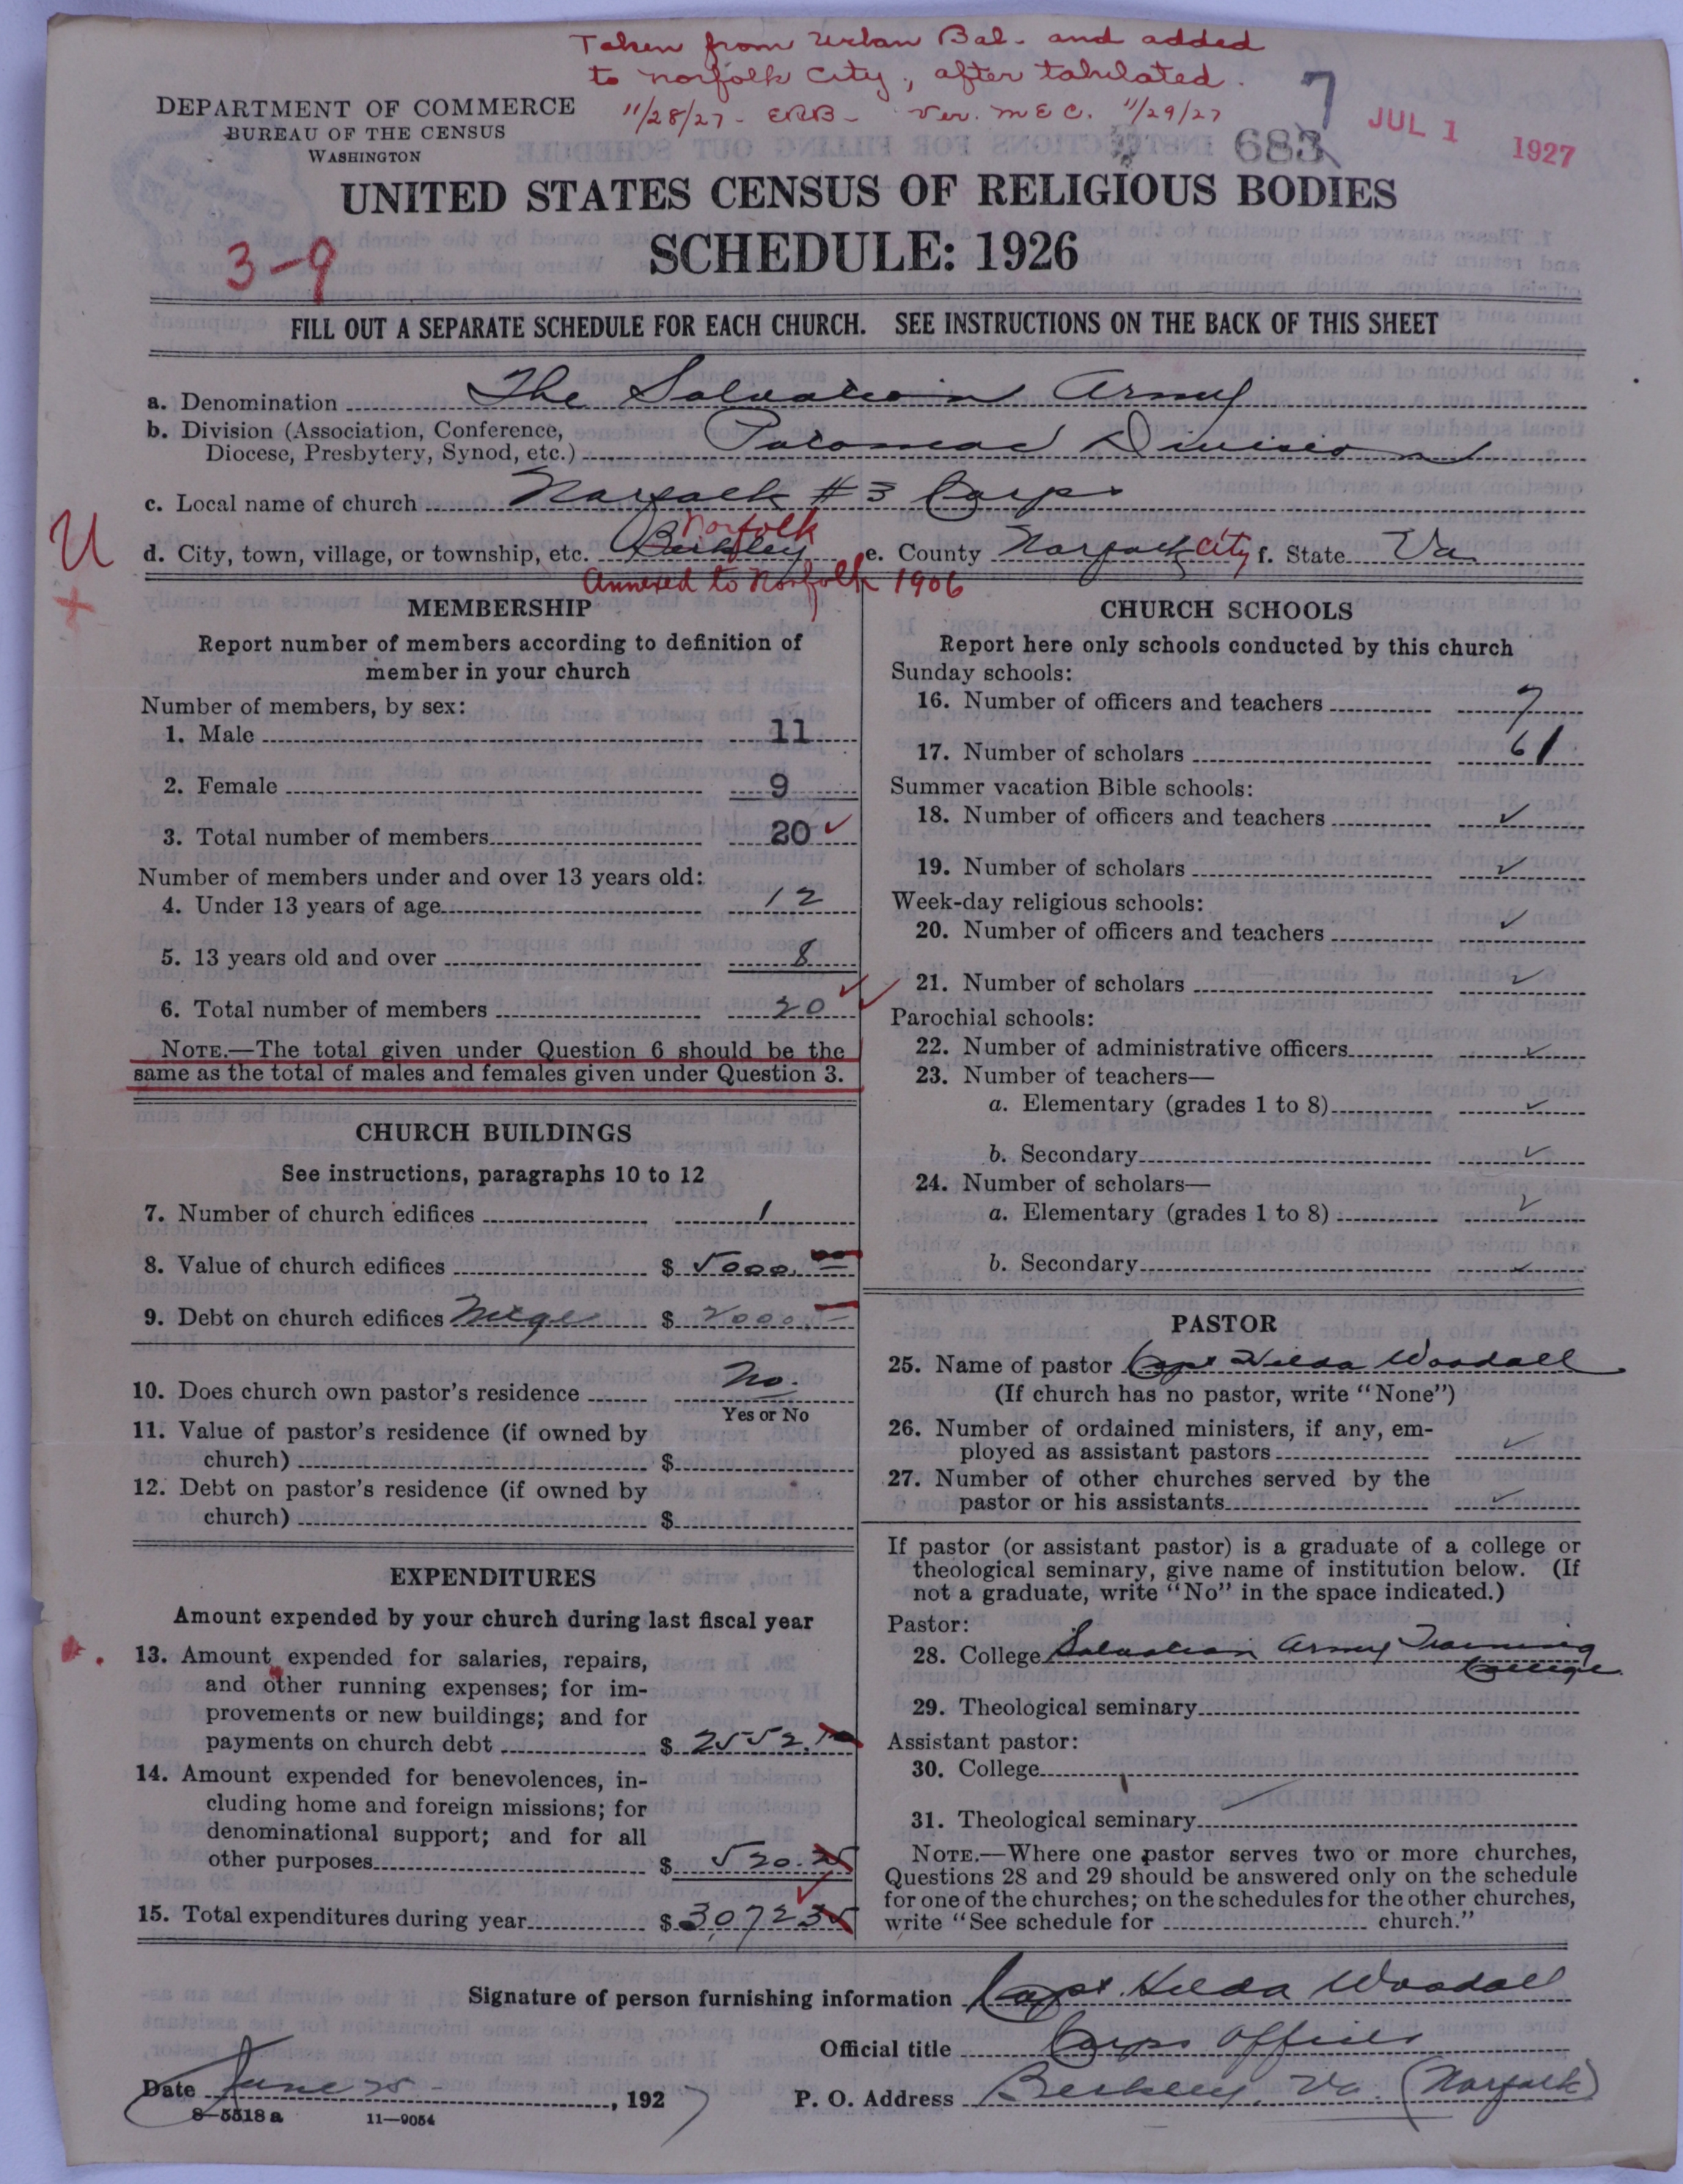 Taken from Urban Bal. and added
to Norfolk City, after tabulated.
11/28/27 - ERB - Ver. M E C. 11/29/27
7
683
JUL 1 1927
DEPARTMENT OF COMMERCE
BUREAU OF THE CENSUS
WASHINGTON
UNITED STATES CENSUS OF RELIGIOUS BODIES
SCHEDULE: 1926
3-9
FILL OUT A SEPARATE SCHEDULE FOR EACH CHURCH. SEE INSTRUCTIONS ON THE BACK OF THIS SHEET
a. Denomination The Salvation Army
b. Division (Association, Conference,
Diocese, Presbytery, Synod, etc.) Potomac Division
c. Local name of church Norfolk #3 Corps
U
Norfolk
d. City, town, village, or township, etc. Berkley e. County Norfolk City f. State Va
Annexed to Norfolk 1906
MEMBERSHIP
Report number of members according to definition of
member in your church
Number of members, by sex:
1. Male 11
2. Female 9
3. Total number of members 20
Number of members under and over 13 years old:
4. Under 13 years of age 12
5. 13 years old and over 8
6. Total number of members 20
NOTE.—The total given under Question 6 should be the
same as the total of males and females given under Question 3.
CHURCH BUILDINGS
See instructions, paragraphs 10 to 12
7. Number of church edifices 1
8. Value of church edifices $ 5000.
9. Debt on church edifices $ 2000.
10. Does church own pastor's residence No.
Yes or No
11. Value of pastor's residence (if owned by
church) $
12. Debt on pastor's residence (if owned by
church) $
EXPENDITURES
Amount expended by your church during last fiscal year
13. Amount expended for salaries, repairs,
and other running expenses; for im-
provements or new buildings; and for
payments on church debt $ 2552.10
14. Amount expended for benevolences, in-
cluding home and foreign missions; for
denominational support; and for all
other purposes $ 520.25
15. Total expenditures during year $ 3,072 35
CHURCH SCHOOLS
Report here only schools conducted by this church
Sunday schools:
16. Number of officers and teachers 7
17. Number of scholars 61
Summer vacation Bible schools:
18. Number of officers and teachers ✓
19. Number of scholars ✓
Week-day religious schools:
20. Number of officers and teachers ✓
21. Number of scholars ✓
Parochial schools:
22. Number of administrative officers ✓
23. Number of teachers—
a. Elementary (grades 1 to 8) ✓
b. Secondary ✓
24. Number of scholars—
a. Elementary (grades 1 to 8) ✓
b. Secondary ✓
PASTOR
25. Name of pastor Capt Hilda Woodall
(If church has no pastor, write "None")
26. Number of ordained ministers, if any, em-
ployed as assistant pastors ✓
27. Number of other churches served by the
pastor or his assistants ✓
If pastor (or assistant pastor) is a graduate of a college or
theological seminary, give name of institution below. (If
not a graduate, write "No" in the space indicated.)
Pastor:
28. College Salvation Army Training
College
29. Theological seminary
Assistant pastor:
30. College
31. Theological seminary
NOTE.—Where one pastor serves two or more churches,
Questions 28 and 29 should be answered only on the schedule
for one of the churches; on the schedules for the other churches,
write "See schedule for church."
Signature of person furnishing information Capt. Hilda Woodall
Official title Corps Officer
Date June 25 - , 1927 P. O. Address Berkley, Va. (Norfolk)
8-5518a 11-9054